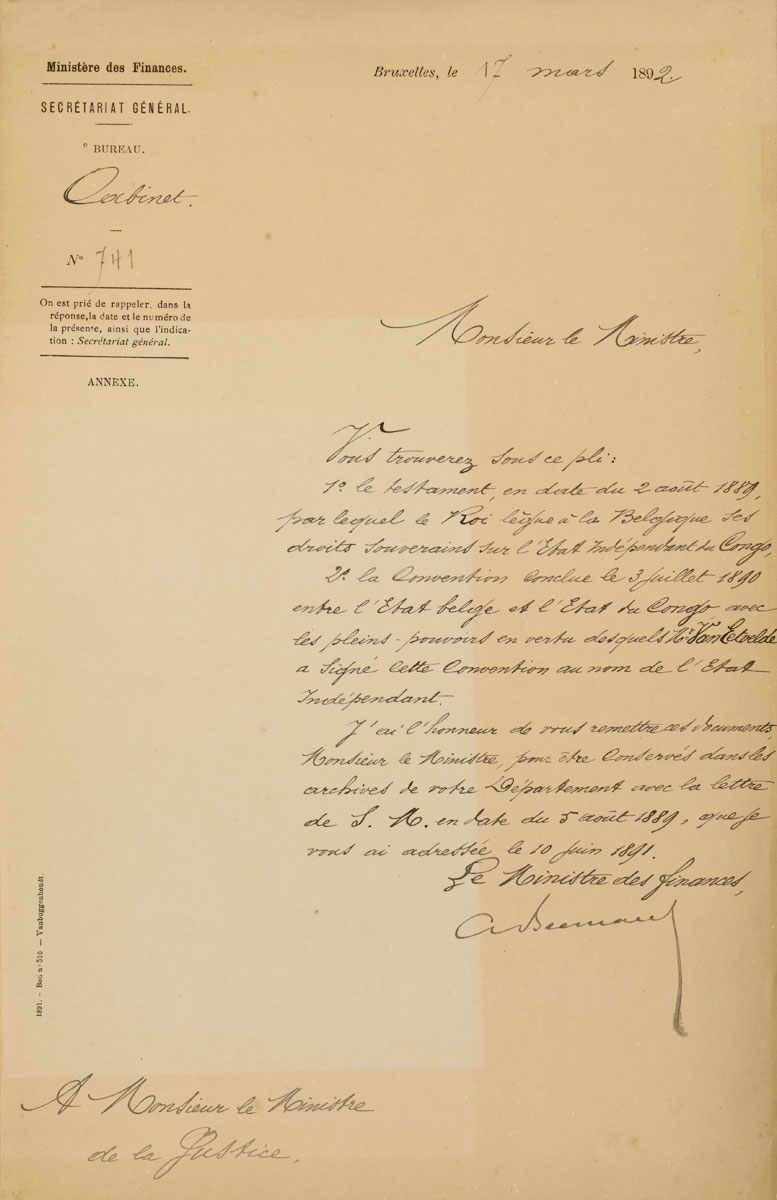 Ministère des Finances.
SECRÉTARIAT GÉNÉRAL.
e BUREAU.
Cabinet.
N° 741
On est prié de rappeler, dans la
réponse, la date et le numéro de
la présente, ainsi que l'indica-
tion : Secrétariat général.
ANNEXE.
Bruxelles, le 17 mars 1892.
Monsieur le Ministre,
Vous trouverez sous ce pli :
1° le testament, en date du 2 août 1889,
par lequel le Roi lègue à la Belgique ses
droits souverains sur l'Etat Indépendant du Congo,
2° la Convention conclue le 3 juillet 1890
entre l'Etat belge et l'Etat du Congo avec
les pleins-pouvoirs en vertu desquels Mr Van Eetvelde
a signé cette Convention au nom de l'Etat
Indépendant.
J'ai l'honneur de vous remettre ces documents,
Monsieur le Ministre, pour être conservés dans les
archives de votre Département avec la lettre
de S. M. en date du 5 août 1889, que je
vous ai adressée le 10 juin 1891.
Le Ministre des finances,
A Beernaert
1891. — Bon n° 510 — Vanbuggenhoudt
A Monsieur le Ministre
de la Justice.